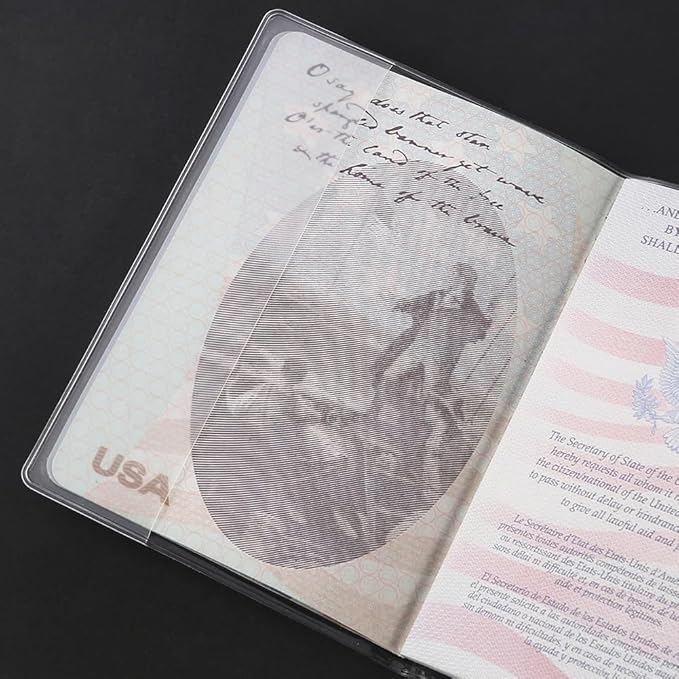 O say does that star
spangled banner yet wave
O'er the land of the free
the home of the brave
USA
...AND
BY
SHALL
The Secretary of State of the U
hereby requests all whom it m
the citizen/national of the United
to pass without delay or hindranc
to give all lawful aid and p
Le Secrétaire d'Etat des Etats-Unis d'Amé
présentes toutes autorités compétentes de laisse
ou ressortissant des Etats-Unis titulaire du
sans délai ni difficulté et, en cas de besoin, de lu
aide et protection légitimes.
El Secretario de Estado de los Estados Unidos de
el presente solicita a las autoridades competentes per
del ciudadano o nacional de los Estados Unidos
sin demora ni dificultades, y en caso de necesid
la ayuda y protección